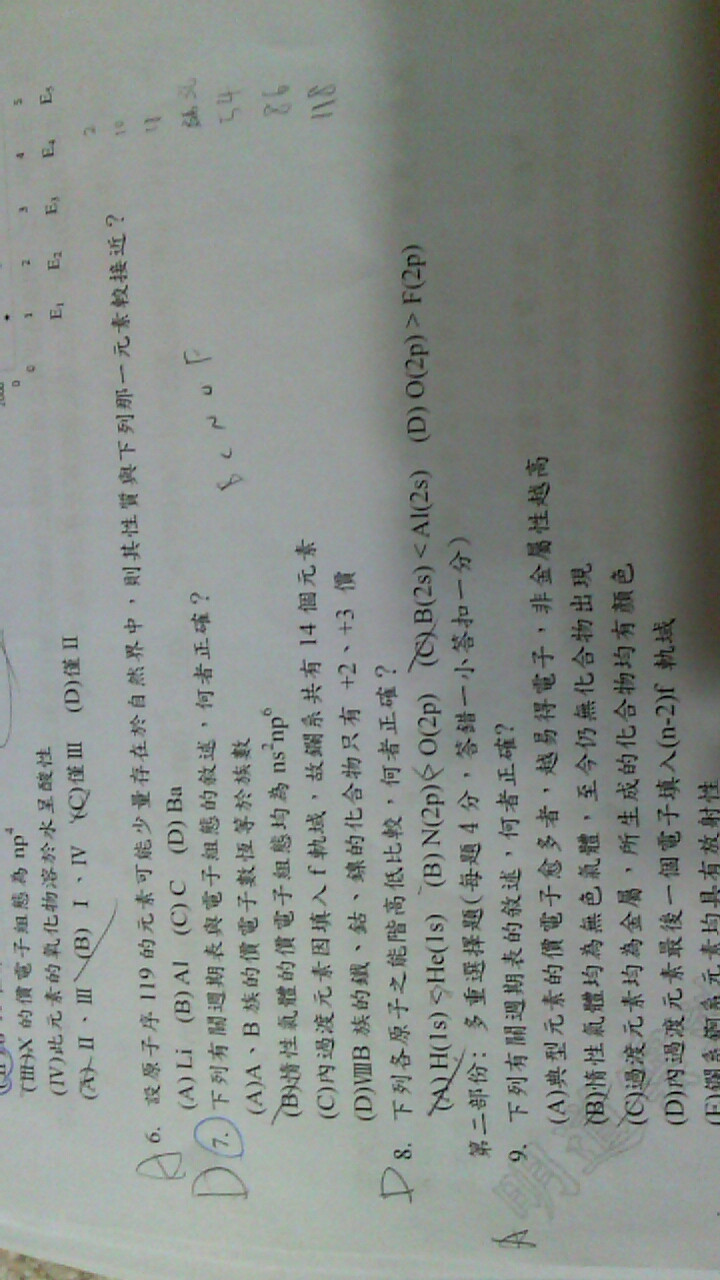 0 1 2 3 4 5
E₁ E₂ E₃ E₄ E₅
(III)X 的價電子組態為 np⁴
(IV)此元素的氧化物溶於水呈酸性
(A) II、III (B) I、IV (C)僅 III (D)僅 II
2
10
54
86
118
A 6. 設原子序 119 的元素可能少量存在於自然界中，則其性質與下列那一元素較接近？
(A) Li (B) Al (C) C (D) Ba
D 7. 下列有關週期表與電子組態的敘述，何者正確？
B C N O F
(A)A、B 族的價電子數恆等於族數
(B)惰性氣體的價電子組態均為 ns²np⁶
(C)內過渡元素因填入 f 軌域，故鑭系共有 14 個元素
(D)VIIIB 族的鐵、鈷、鎳的化合物只有 +2、+3 價
D 8. 下列各原子之能階高低比較，何者正確？
(A) H(1s) < He(1s) (B) N(2p) < O(2p) (C) B(2s) < Al(2s) (D) O(2p) > F(2p)
第二部份：多重選擇題(每題 4 分，答錯一小答扣一分)
A 9. 下列有關週期表的敘述，何者正確?
(A)典型元素的價電子愈多者，越易得電子，非金屬性越高
(B)惰性氣體均為無色氣體，至今仍無化合物出現
(C)過渡元素均為金屬，所生成的化合物均有顏色
(D)內過渡元素最後一個電子填入(n-2)f 軌域
(E)鑭系錒系元素均具有放射性